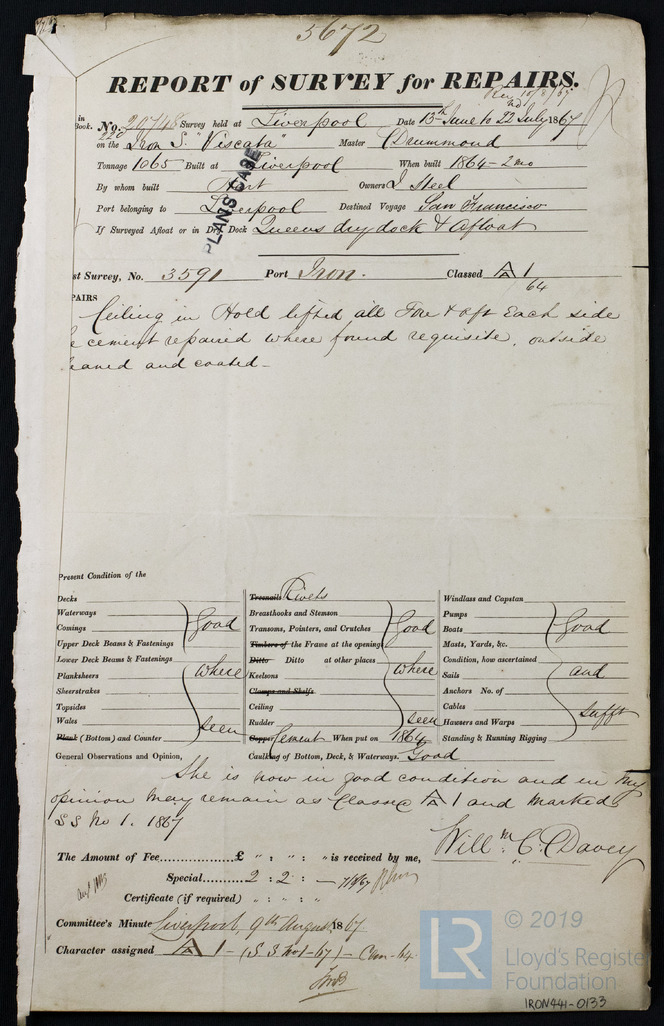 5672
REPORT of SURVEY for REPAIRS.
in Book. No. 20748 Survey held at Liverpool Date 13th June to 22nd July 1867
220 on the Iron S. "Viscata" Master Drummond
Tonnage 1065 Built at Liverpool When built 1864 - 2 mo
By whom built Hart Owners J Steel
Port belonging to Liverpool Destined Voyage San Francisco
If Surveyed Afloat or in Dry Dock Queens dry dock & Afloat
PLANS CASE
st Survey, No. 3591 Port Iron. Classed A 1
64
PAIRS
Ceiling in Hold lifted all Fore & aft Each side
e cement repaired where found requisite, outside
eaned and coated -
Present Condition of the
Decks
Waterways
Comings
Upper Deck Beams & Fastenings
Lower Deck Beams & Fastenings
Planksheers
Sheerstrakes
Topsides
Wales
Plank (Bottom) and Counter
Good
where
seen
Treenails Rivets
Breasthooks and Stemson
Transoms, Pointers, and Crutches
Timbers of the Frame at the openings
Ditto Ditto at other places
Keelsons
Clamps and Shelfs
Ceiling
Rudder
Copper Cement When put on 1864
Caulking of Bottom, Deck, & Waterways. Good
Good
where
seen
Windlass and Capstan
Pumps
Boats
Masts, Yards, &c.
Condition, how ascertained
Sails
Anchors No. of
Cables
Hawsers and Warps
Standing & Running Rigging
Good
and
sufft
General Observations and Opinion,
She is now in good condition and in my
opinion may remain as Classed A 1 and marked
S S No 1. 1867
Willm. C. Davey
The Amount of Fee..............£ " : " : " is received by me,
Special.........2 : 2 : -
Certificate (if required) " : " : "
Committee's Minute Liverpool, 9th August 1867
Character assigned A 1 - (S S No 1 - 67) - Cem - 64
© 2019
LR
Lloyd's Register
Foundation
IRON441-0133